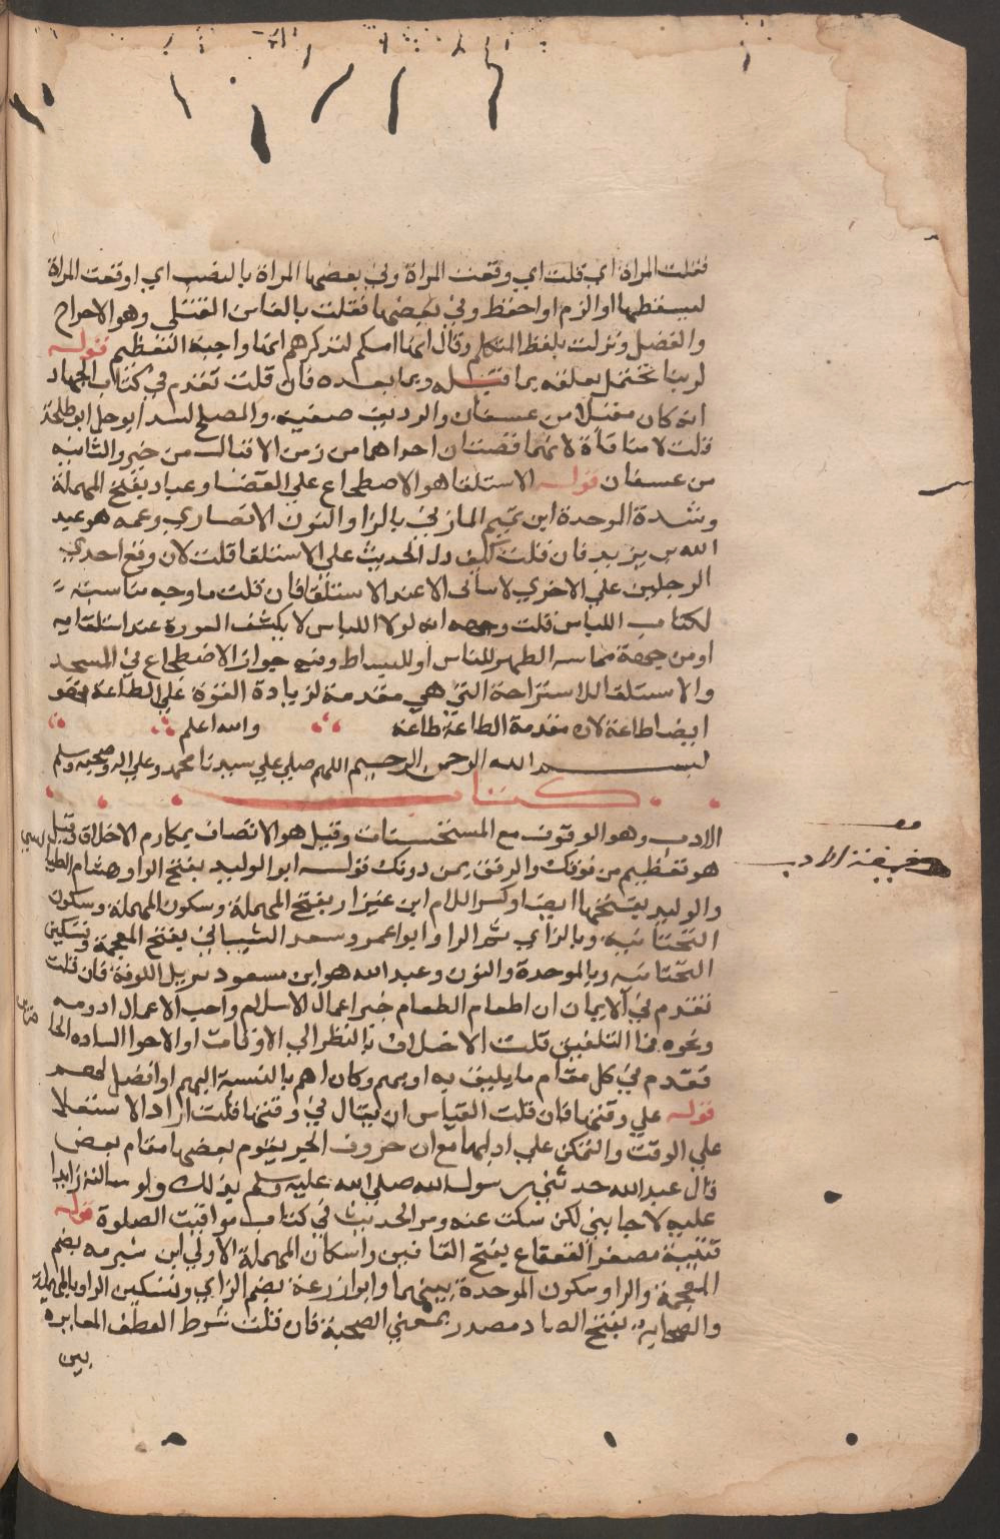 فقلت المراة اي قلت اي وقعت المراة وفي بعضها المراة بالنصب اي اوقعت المراة
لسقطها او الزم او احفظ وفي بعضها فقلت بالفاس القتلي وهو الاحراج
والفصل ونزلت بلفظ المتكلم وقال انها امكم لتذكرهم انها واجبة التعظيم قوله
لربنا تحتمل تعلقه بما قبله وبما بعده فان قلت تقدم في كتاب الجهاد
انه كان مقبلا من عسفان والرديف صفية والمصلح لشد الرحل ابو طلحة
قلت لا منافاة لانهما قصتان احداهما من زمن الاقبال من خيبر والثانية
من عسفان قوله الاستلقا هو الاضطجاع علي القفا وعباد بفتح المهملة
وشدة الموحدة ابن تميم المازني بالزا والنون الانصاري وعمه هو عبد
الله بن يزيد فان قلت كيف دل الحديث علي الاستلقا قلت لان رفع احدي
الرجلين علي الاخري لا يتأتى الا عند الاستلقا فان قلت ما وجه مناسبته
لكتاب اللباس قلت وجهه انه لولا اللباس لا يكشف العورة عند استلقايه
او من جهة مماسة الظهر للباس او للبساط وفيه جواز الاضطجاع في المسجد
والاستلقا للاستراحة التي هي مقدمة لزيادة القوة علي الطاعة فهو
ايضا طاعة لان مقدمة الطاعة طاعة والله اعلم
بسم الله الرحمن الرحيم اللهم صلي علي سيدنا محمد وعلي اله وصحبه وسلم
كتاب
الادب وهو الوقوف مع المستحسنات وقيل هو الاتصاف بمكارم الاخلاق وقيل
هو تعظيم من فوقك والرفق بمن دونك قوله ابو الوليد بفتح الواو هشام الطيالسي
والوليد بفتحها ايضا وكسر اللام ابن عيزار بفتح المهملة وسكون المهملة وسكون
التحتانية وبالزاي ثم الرا وابو عمرو سعد الشيباني بفتح المعجمة وتسكين
التحتانية وبالموحدة والنون وعبد الله هو ابن مسعود نزيل الكوفة فان قلت
تقدم في الايمان ان اطعام الطعام خير اعمال الاسلام واحب الاعمال ادومه
ونحوه فما التلفيق قلت الاختلاف بالنظر الي الاوقات او الاحوال
فقدم في كل مقام ما يليق به او بهم وكان اهم بالنسبة اليهم او افضل لهم
قوله علي وقتها فان قلت القياس ان يقال في وقتها قلت اراد الاستعلا
علي الوقت والتمكن علي ادايها مع ان حروف الجر يقوم بعضها مقام بعض
قال عبد الله حدثني رسول الله صلي الله عليه وسلم بذلك ولو سالته زايدا
عليه لاجابني لكن سكت عنه ومر الحديث في كتاب مواقيت الصلوة قوله
قتيبة مصغر القعقاع بفتح القافين واسكان المهملة الاولي ابن شبرمه بضم
المعجمة والرا وسكون الموحدة بينهما وابو زرعة بضم الزاي وتسكين الرا وبالمهملة
والصحابة بفتح الصاد مصدر بمعني الصحبة فان قلت شرط العطف المغايرة
بين